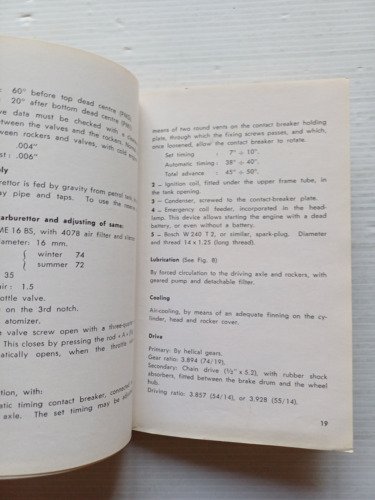 : 60° before top dead centre (PMS)
: 20° after bottom dead centre (PMI)
ve data must be checked with a
between the valves and the rockers.
ween rockers and valves, with cold
.004"
st : .006"
ly
rettor is fed by gravity from petrol
ay pipe and taps. To use the
arburettor and adjusting of same:
ME 16 BS, with 4078 air filter and
ameter: 16 mm.
{ winter 74
{ summer 72
35
air : 1.5
ottle valve.
on the 3rd notch.
atomizer.
e valve screw open with a
This closes by pressing the rod
atically opens, when the throttle
ion, with:
atic timing contact breaker, connected
axle. The set timing may be
means of two round vents on the contact breaker holding
plate, through which the fixing screws passes, and which,
once loosened, allow the contact breaker to rotate.
Set timing : 7° ÷ 10°.
Automatic timing : 38° ÷ 40°.
Total advance : 45° ÷ 50°.
2 – Ignition coil, fitted under the upper frame tube, in
the tank opening.
3 – Condenser, screwed to the contact-breaker plate.
4 – Emergency coil feeder, incorporated in the head-
lamp. This device allows starting the engine with a dead
battery, or even without a battery.
5 – Bosch W 240 T 2, or similar, spark-plug. Diameter
and thread 14 x 1.25 (long thread).
Lubrication (See Fig. 8)
By forced circulation to the driving axle and rockers, with
geared pump and detachable filter.
Cooling
Air-cooling, by means of an adequate finning on the cy-
linder, head and rocker cover.
Drive
Primary: By helical gears.
Gear ratio: 3.894 (74/19).
Secondary: Chain drive (½" x 5.2), with rubber shock
absorbers, fitted between the brake drum and the wheel
hub.
Driving ratio: 3.857 (54/14), or 3,928 (55/14).
19